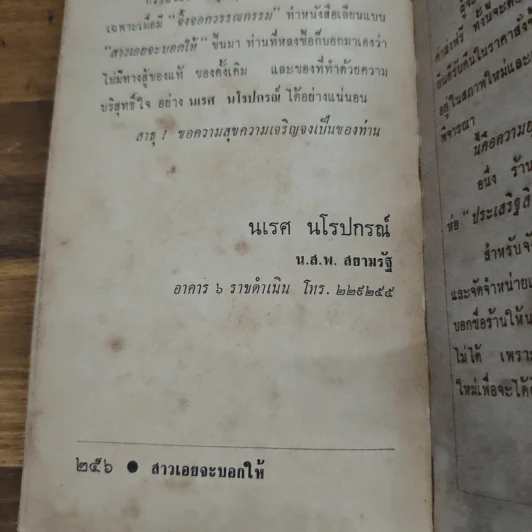 เฉพาะเมื่อมี “จิ้งจอกวรรณกรรม” ทำหนังสือเลียนแบบ
“สาวเอยจะบอกให้” ขึ้นมา ท่านที่หลงซื้อก็บอกมาเองว่า
ไม่มีทางสู้ของแท้ ของดั้งเดิม และของที่ทำด้วยความ
บริสุทธิ์ใจ อย่าง นเรศ นโรปกรณ์ ได้อย่างแน่นอน
สาธุ ! ขอความสุขความเจริญจงเป็นของท่าน
นเรศ นโรปกรณ์
น.ส.พ. สยามรัฐ
อาคาร ๖ ราชดำเนิน โทร. ๒๒๙๒๕๕
๒๕๖ ● สาวเอยจะบอกให้
ค่าส่งฟรี ทั้งนี้จะต้อง
ยินดีรับคืนในราคาส่ง
อยู่ในสภาพใหม่และ
พิจารณา
นี่คือความ
อนึ่ง ร้าน
ห่อ “ประเสริฐ
สำหรับจัด
และจัดจำหน่าย
บอกชื่อร้านให้
ไม่ได้ เพราะ
ใหม่เพื่อจะได้